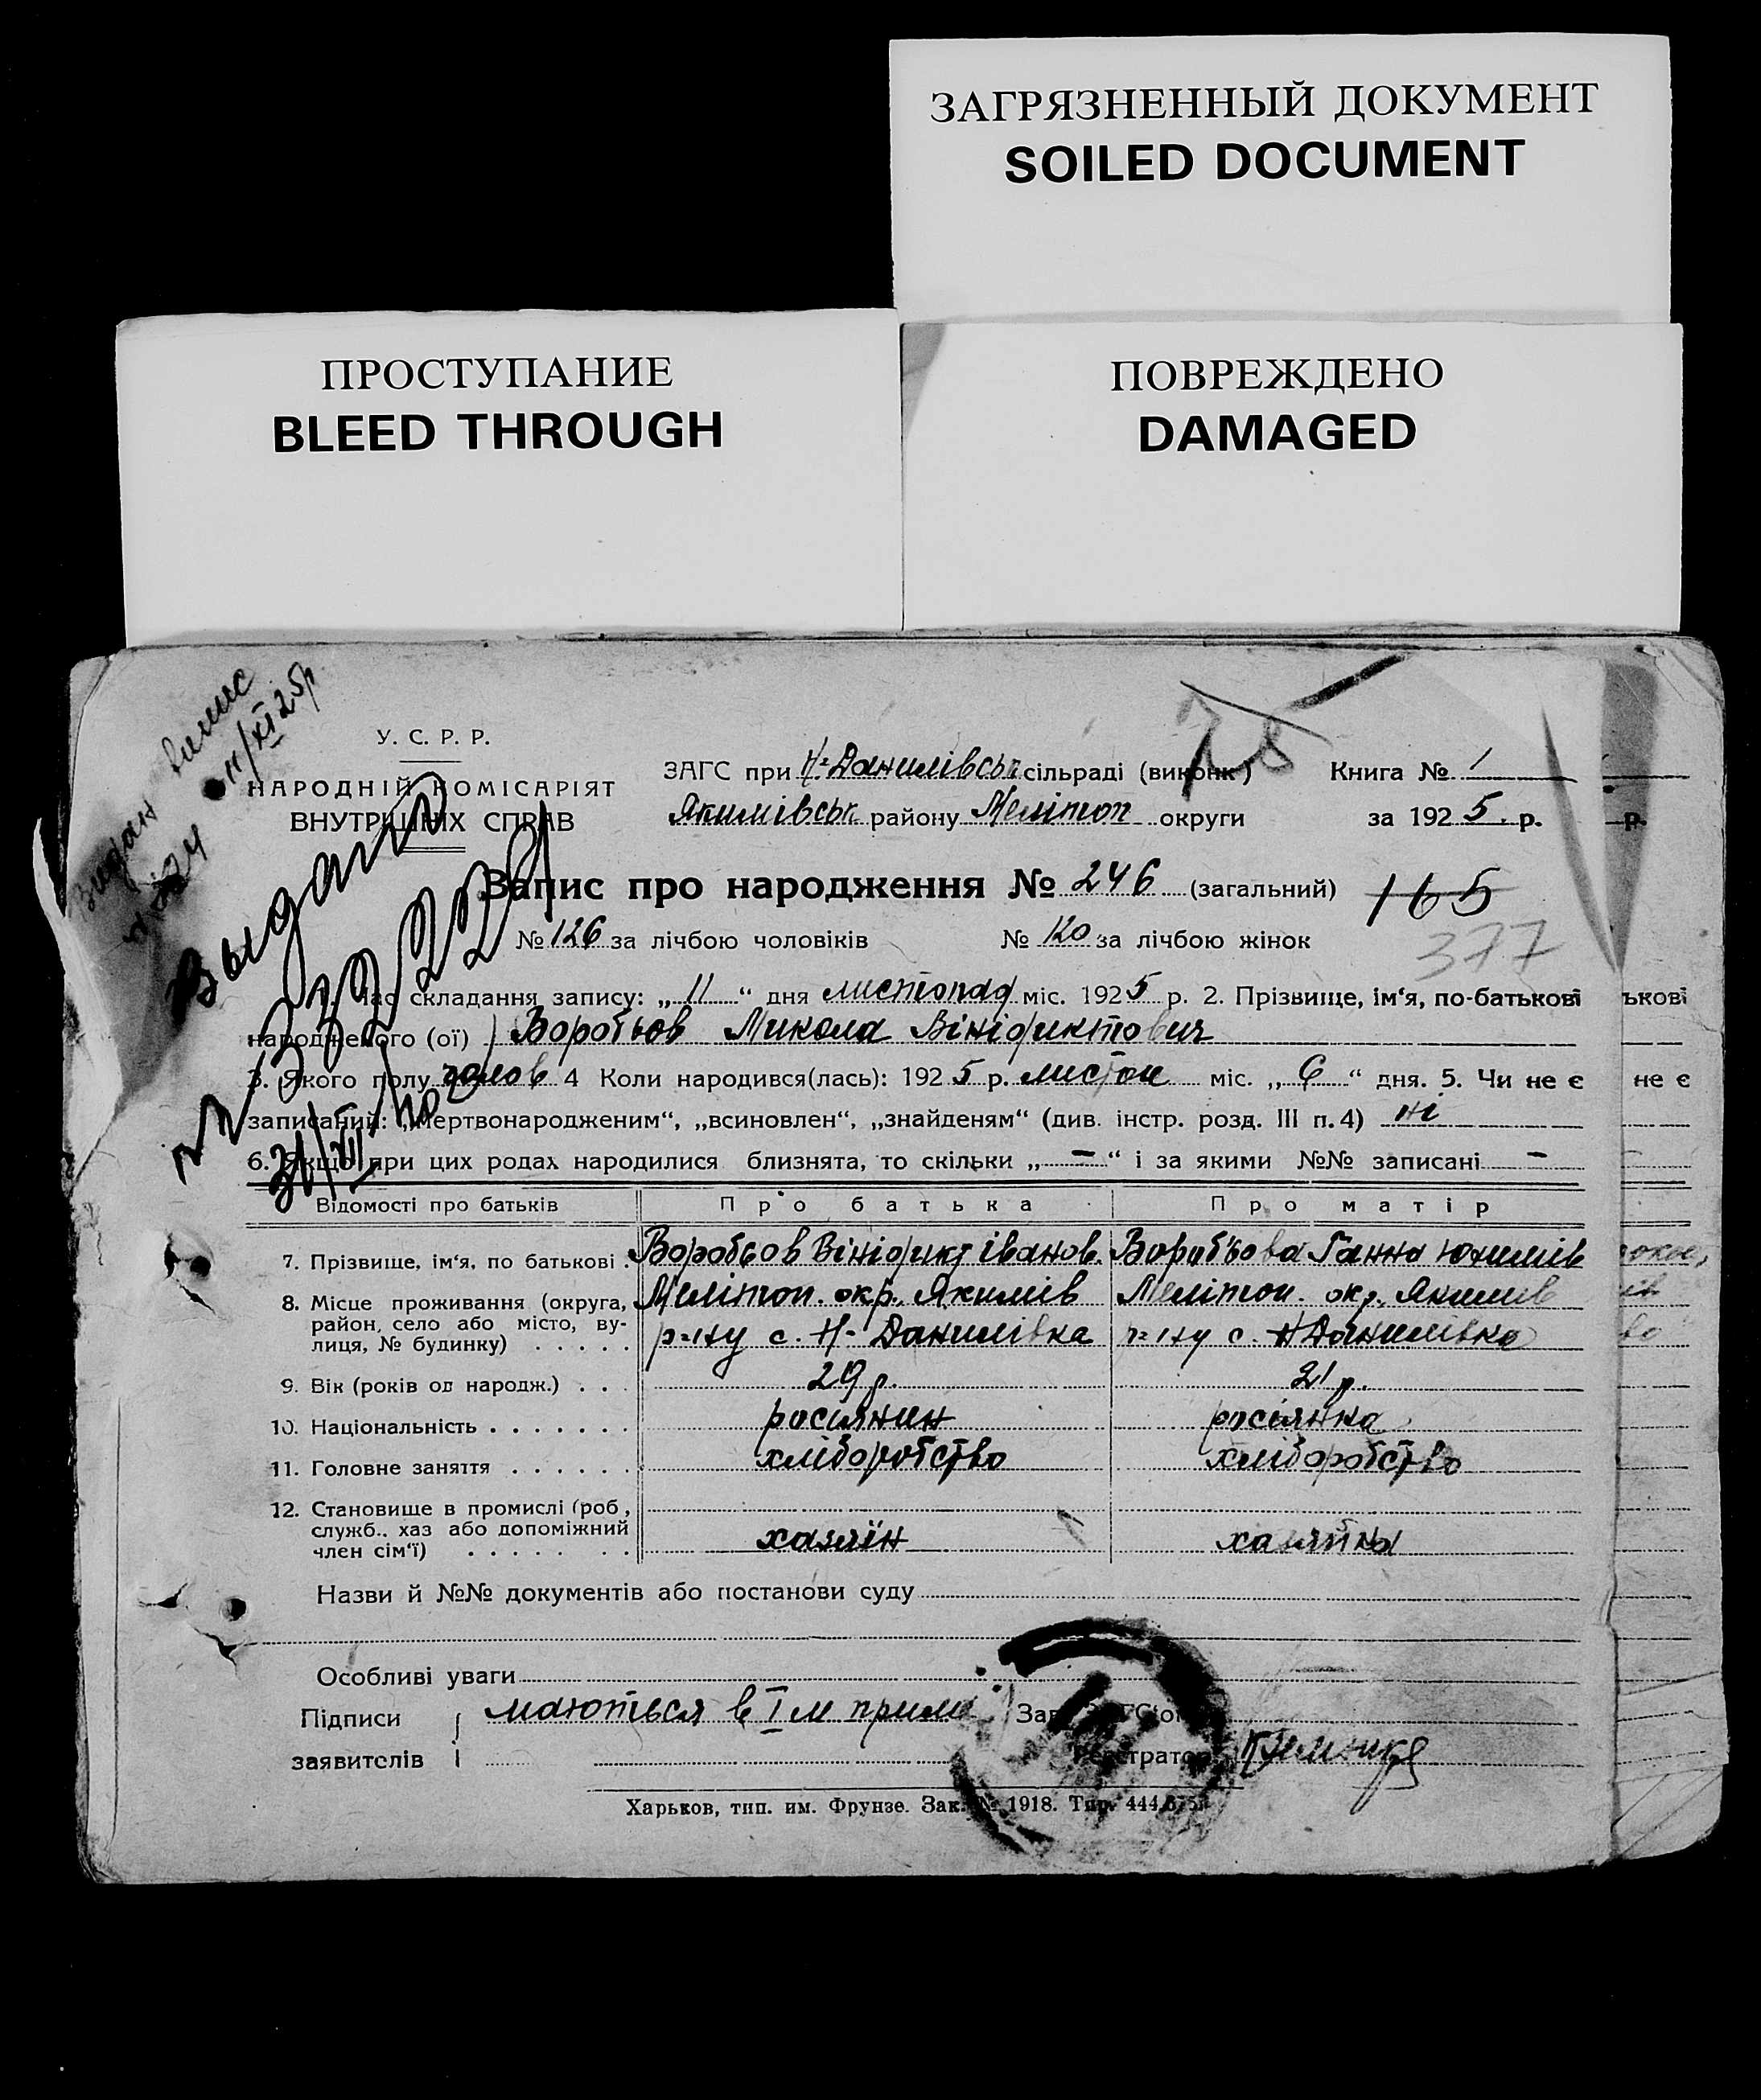 ЗАГРЯЗНЕННЫЙ ДОКУМЕНТ
SOILED DOCUMENT
ПРОСТУПАНИЕ
BLEED THROUGH
ПОВРЕЖДЕНО
DAMAGED
11/XI 25р
У. С. Р. Р.
НАРОДНІЙ КОМІСАРІЯТ
ВНУТРІШНІХ СПРАВ
Выдано
31/XII
ЗАГС при Н-Данилівськ сільраді (виконк) Книга № 1
Якимівськ району Мелітоп округи за 1925 р.
Запис про народження № 246 (загальний) 165
№ 126 за лічбою чоловіків № 120 за лічбою жінок
377
1. Час складання запису: „11“ дня листопад міс. 1925 р. 2. Прізвище, ім‘я, по-батькові
народженого (ої) Воробьов Микола Вінідиктович
3. Якого полу чолов 4 Коли народився(лась): 1925 р. листоп міс. „6“ дня. 5. Чи не є
записаний: „мертвонародженим“, „всиновлен“, „знайденям“ (див. інстр. розд. III п. 4) ні
6. Якщо при цих родах народилися близнята, то скільки „-“ і за якими №№ записані -
Відомості про батьків Про батька Про матір
7. Прізвище, ім‘я, по батькові . Воробьов Вінідикт Іванов. Воробьова Ганна Юхимів
8. Місце проживання (округа, район, село або місто, вулиця, № будинку) . . . . .
Мелітоп. окр., Якимів Мелітоп. окр., Якимів
р-ну с. Н-Данилівка р-ну с. Н Данилівка
9. Вік (років од народж.) . . . 29 р. 21 р.
10. Національність . . . . . . . росіянин росіянка
11. Головне заняття . . . . . . хліборобство хліборобство
12. Становище в промислі (роб, служб., хаз або допоміжний член сім‘ї) . . . . . . хазяїн хазяйка
Назви й №№ документів або постанови суду
Особливі уваги
Підписи маються в I м прим
заявителів Реєстратор
Харьков, тип. им. Фрунзе. Зак. № 1918. Тир. 444.675